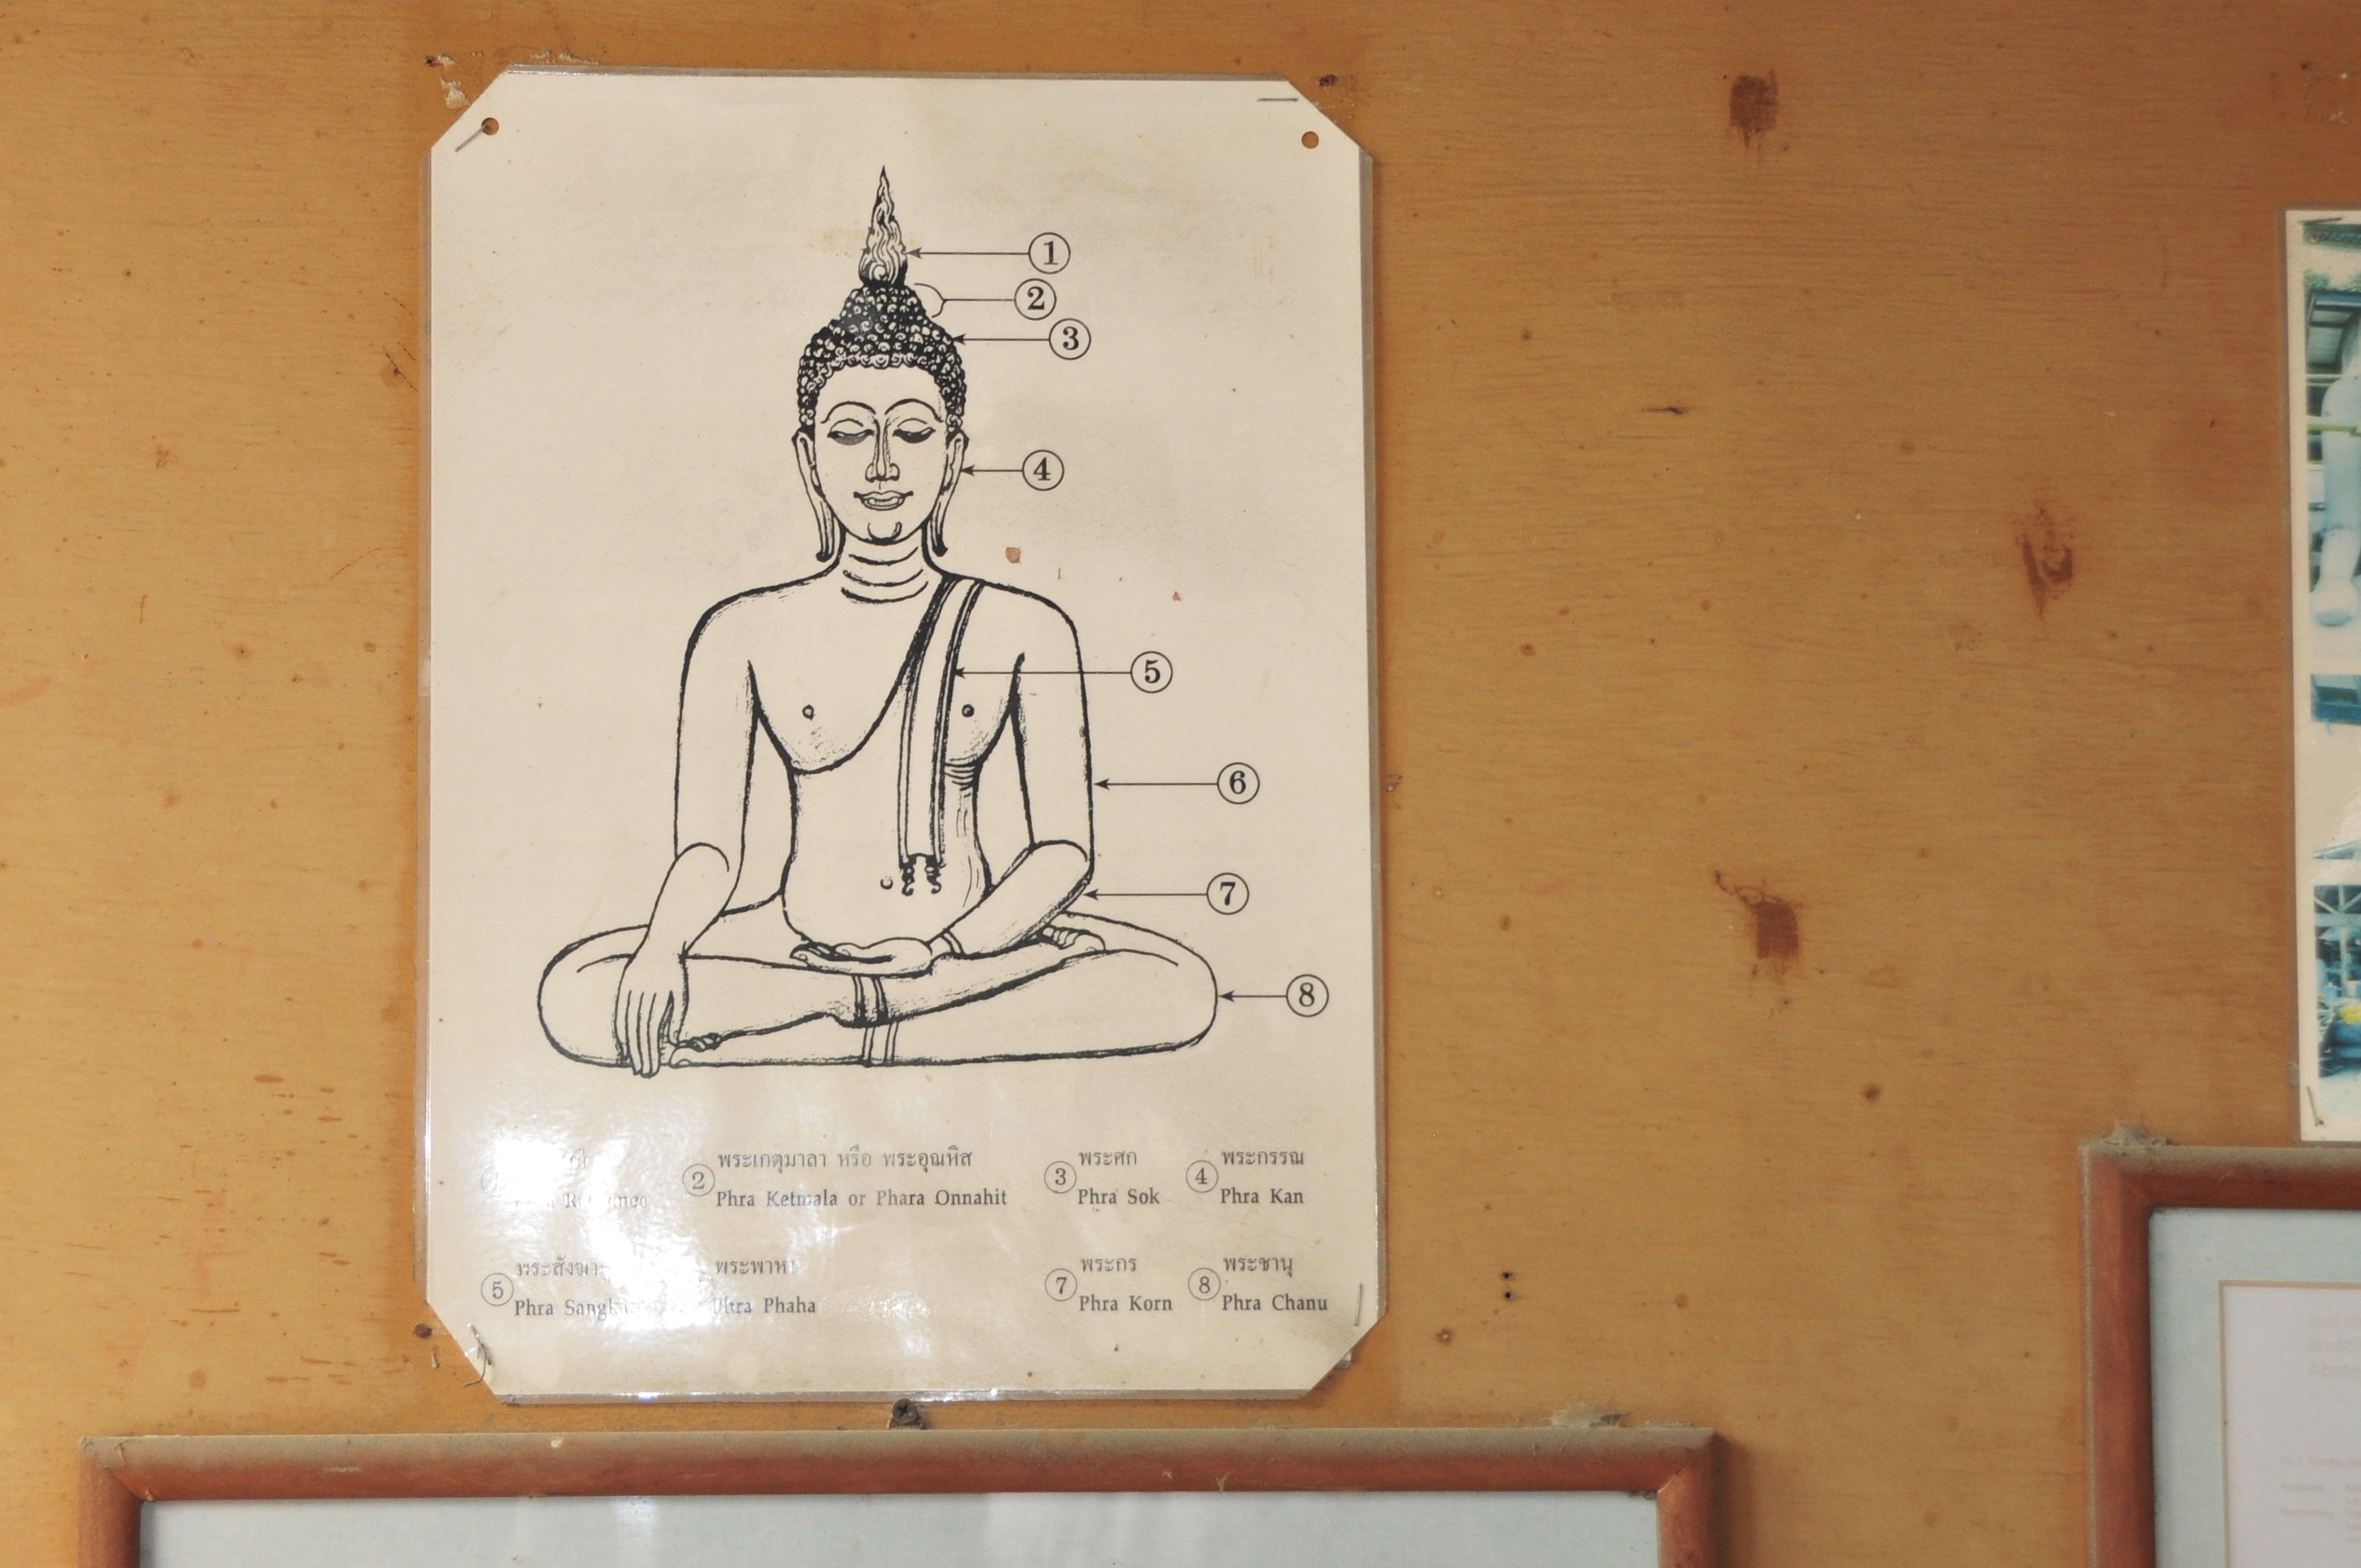 1
2
3
4
5
6
7
8
② พระเกตุมาลา หรือ พระอุณหิส
Phra Ketmala or Phara Onnahit
③ พระศก
Phra Sok
④ พระกรรณ
Phra Kan
⑤
Phra
พระพาหา
Phra Phaha
⑦ พระกร
Phra Korn
⑧ พระชานุ
Phra Chanu